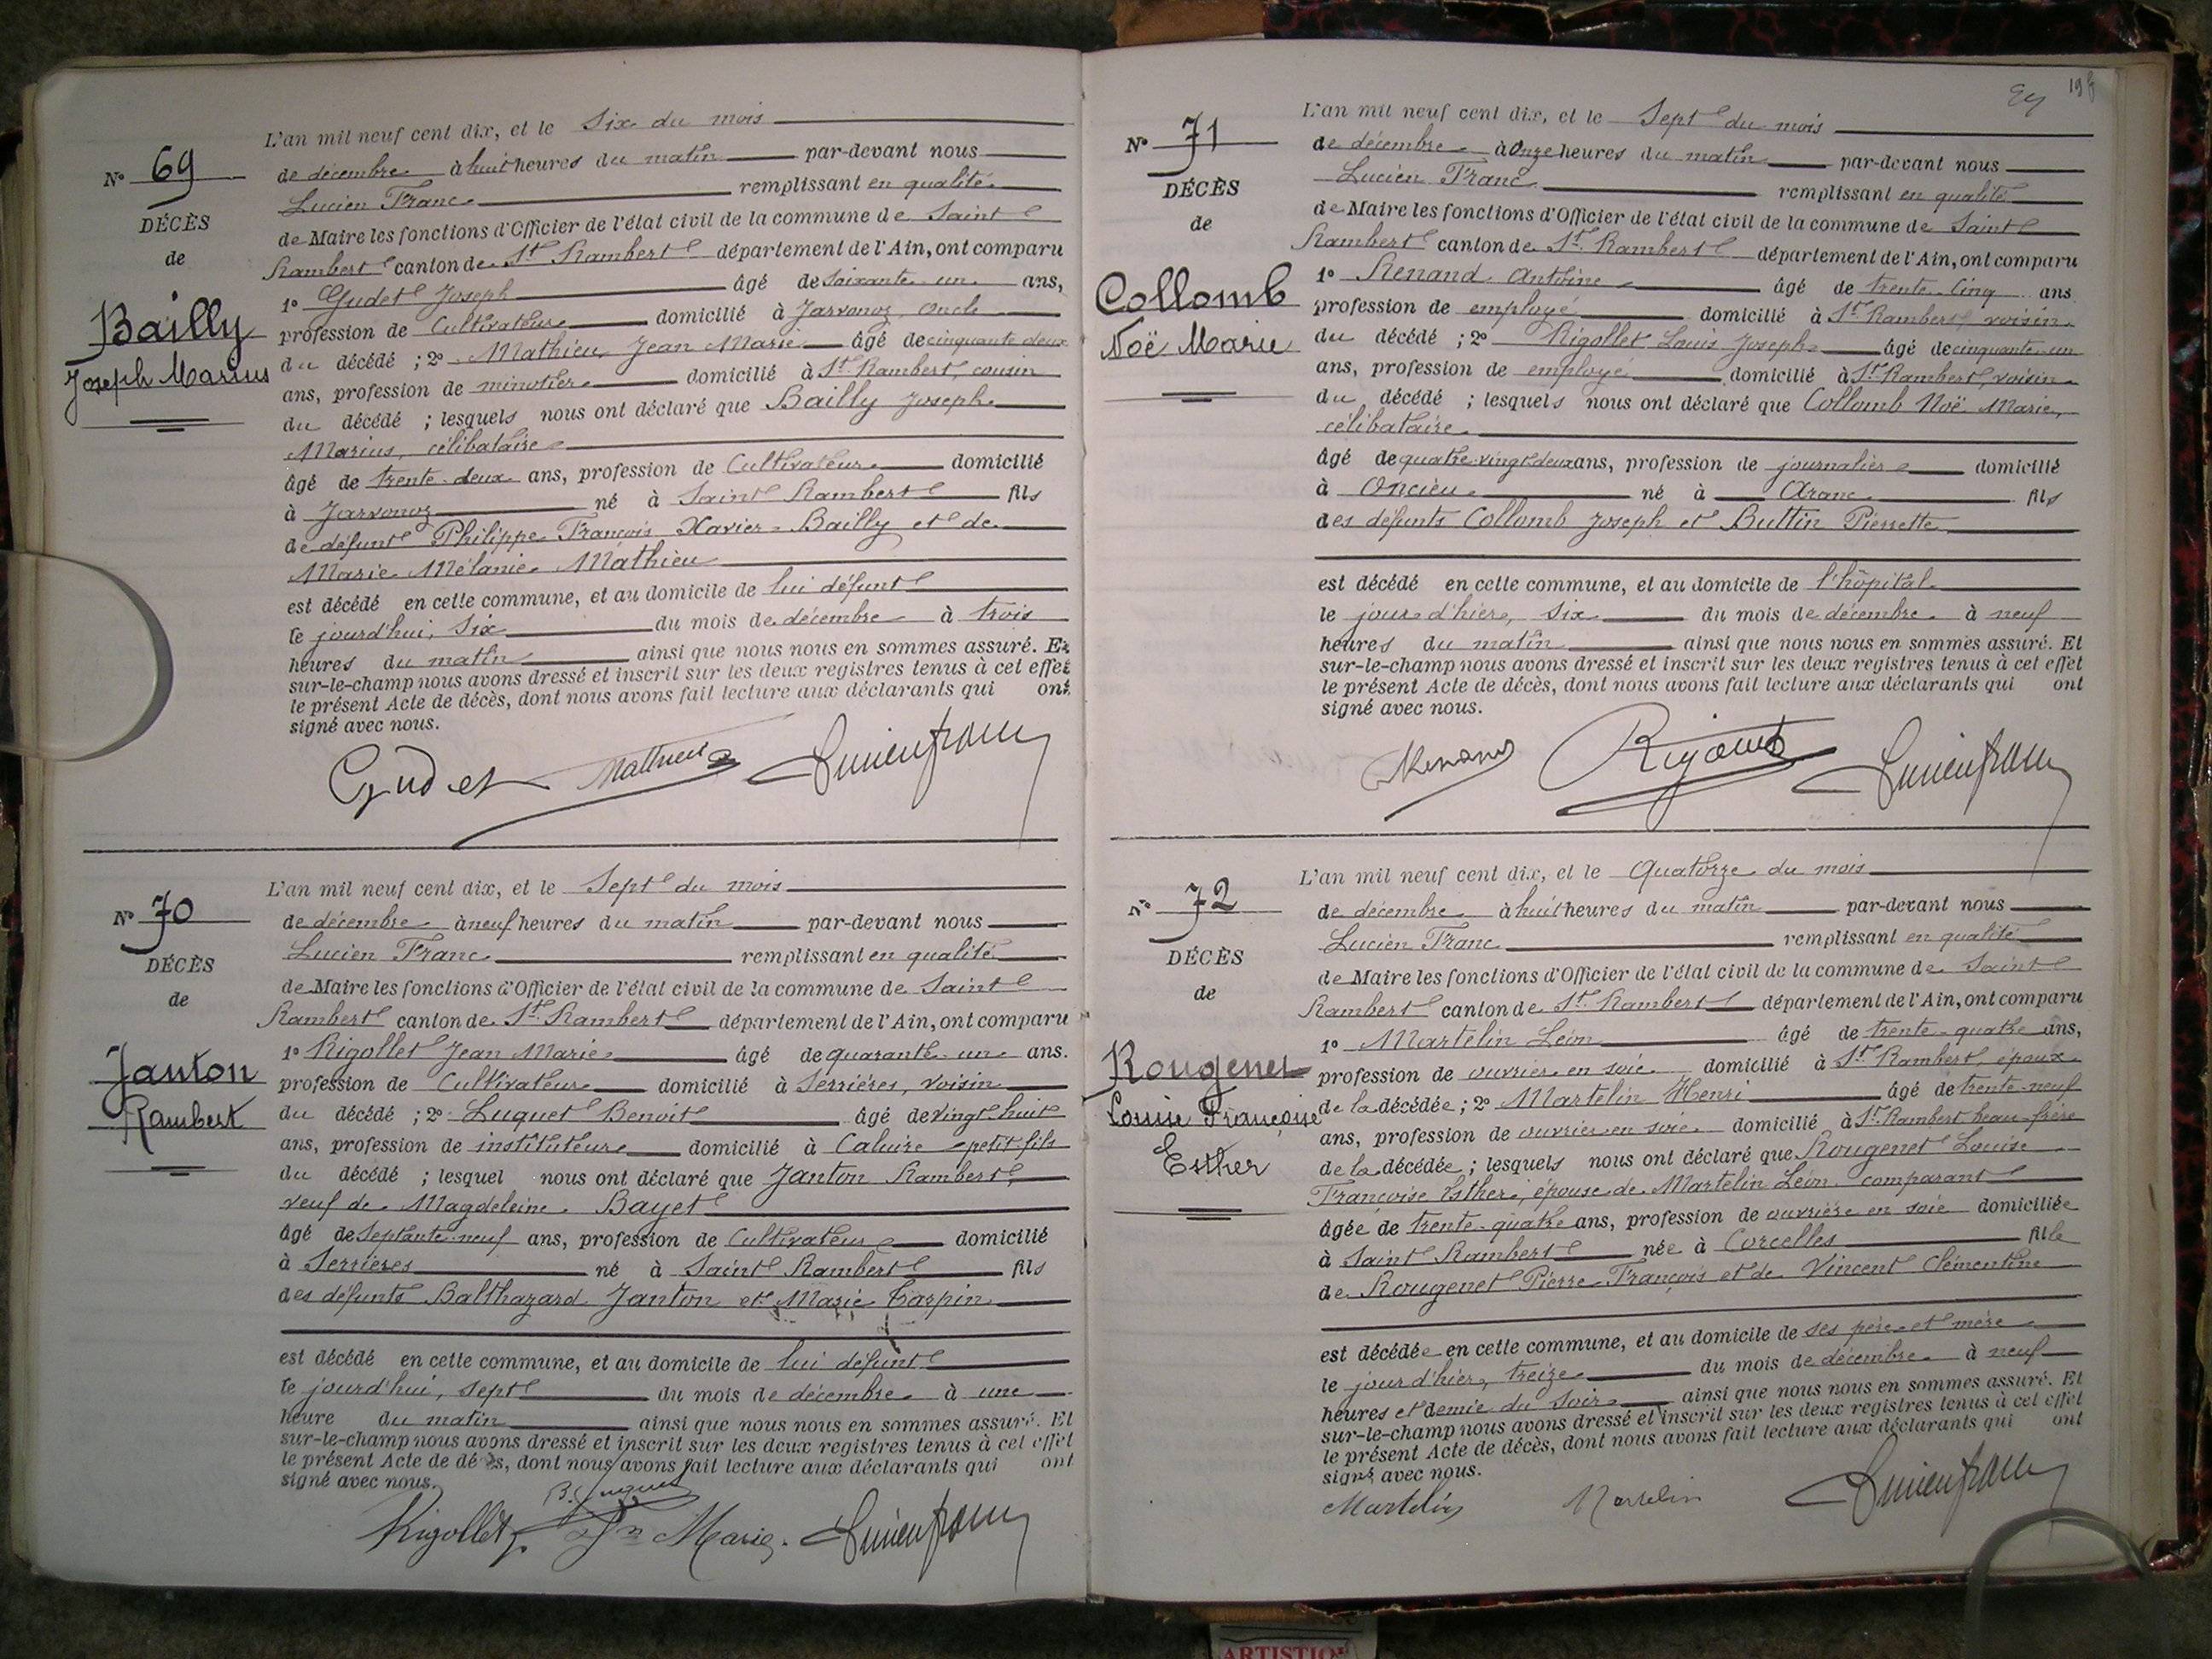 N° 69
DÉCÈS
de
Bailly
Joseph Marius
L'an mil neuf cent dix, et le Six du mois
de décembre à huit heures du matin par-devant nous
Lucien Franc remplissant en qualité
de Maire les fonctions d'Officier de l'état civil de la commune de Saint
Rambert canton de St Rambert département de l'Ain, ont comparu
1° Gudet Joseph âgé de soixante un ans,
profession de Cultivateur domicilié à Javornoz, oncle
du décédé ; 2° Mathieu Jean Marie âgé de cinquante deux
ans, profession de minotier domicilié à St Rambert, cousin
du décédé ; lesquels nous ont déclaré que Bailly Joseph
Marius, célibataire
âgé de trente-deux ans, profession de Cultivateur domicilié
à Javornoz né à Saint Rambert fils
de défunt Philippe François Xavier Bailly et de
Marie Mélanie Mathieu
est décédé en cette commune, et au domicile de lui défunt
le jourd'hui, six du mois de décembre à trois
heures du matin ainsi que nous nous en sommes assuré. Et
sur-le-champ nous avons dressé et inscrit sur les deux registres tenus à cet effet
le présent Acte de décès, dont nous avons fait lecture aux déclarants qui ont
signé avec nous.
Gudet Mathieu Lucien Franc
N° 70
DÉCÈS
de
Janton
Rambert
L'an mil neuf cent dix, et le Sept du mois
de décembre à neuf heures du matin par-devant nous
Lucien Franc remplissant en qualité
de Maire les fonctions d'Officier de l'état civil de la commune de Saint
Rambert canton de St Rambert département de l'Ain, ont comparu
1° Rigollet Jean Marie âgé de quarante-un ans.
profession de Cultivateur domicilié à Serrières, voisin
du décédé ; 2° Luquet Benoit âgé de vingt huit
ans, profession de instituteur domicilié à Caluire petit-fils
du décédé ; lesquel nous ont déclaré que Janton Rambert,
veuf de Magdeleine Bayet
âgé de septante-neuf ans, profession de Cultivateur domicilié
à Serrières né à Saint Rambert fils
des défunts Balthazard Janton et Marie Tarpin
est décédé en cette commune, et au domicile de lui défunt
le jourd'hui, sept du mois de décembre à une
heure du matin ainsi que nous nous en sommes assuré. Et
sur-le-champ nous avons dressé et inscrit sur les deux registres tenus à cet effet
le présent Acte de décès, dont nous avons fait lecture aux déclarants qui ont
signé avec nous.
B. Luquet
Rigollet Jn Marie. Lucien Franc
N° 71
DÉCÈS
de
Collomb
Noë Marie
L'an mil neuf cent dix, et le Sept du mois
de décembre à onze heures du matin par-devant nous
Lucien Franc remplissant en qualité
de Maire les fonctions d'Officier de l'état civil de la commune de Saint
Rambert canton de St Rambert département de l'Ain, ont comparu
1° Renand Antoine âgé de trente-cinq ans
profession de employé domicilié à St Rambert, voisin
du décédé ; 2° Rigollet Louis Joseph âgé de cinquante-un
ans, profession de employé domicilié à St Rambert, voisin
du décédé ; lesquels nous ont déclaré que Collomb Noë Marie,
célibataire
âgé de quatre-vingt-deux ans, profession de journalier domicilié
à Oncieu né à Aranc fils
des défunts Collomb Joseph et Buttin Pierrette
est décédé en cette commune, et au domicile de l'hôpital
le jour d'hier, six du mois de décembre à neuf
heures du matin ainsi que nous nous en sommes assuré. Et
sur-le-champ nous avons dressé et inscrit sur les deux registres tenus à cet effet
le présent Acte de décès, dont nous avons fait lecture aux déclarants qui ont
signé avec nous.
Renand Lucien Franc
N° 72
DÉCÈS
de
Rougenet
Louise Françoise
Esther
L'an mil neuf cent dix, et le Quatorze du mois
de décembre à huit heures du matin par-devant nous
Lucien Franc remplissant en qualité
de Maire les fonctions d'Officier de l'état civil de la commune de Saint
Rambert canton de St Rambert département de l'Ain, ont comparu
1° Martelin Léon âgé de trente-quatre ans,
profession de ouvrier en soie domicilié à St Rambert, époux
de la décédée ; 2° Martelin Henri âgé de trente-neuf
ans, profession de ouvrier en soie domicilié à St Rambert beau-frère
de la décédée ; lesquels nous ont déclaré que Rougenet Louise
Françoise Esther, épouse de Martelin Léon comparant
âgée de trente-quatre ans, profession de ouvrière en soie domiciliée
à Saint Rambert née à Corcelles fille
de Rougenet Pierre François et de Vincent Clémentine
est décédée en cette commune, et au domicile de ses père et mère
le jour d'hier, treize du mois de décembre à neuf
heures et demie du soir ainsi que nous nous en sommes assuré. Et
sur-le-champ nous avons dressé et inscrit sur les deux registres tenus à cet effet
le présent Acte de décès, dont nous avons fait lecture aux déclarants qui ont
signé avec nous.
Martelin Martelin Lucien Franc